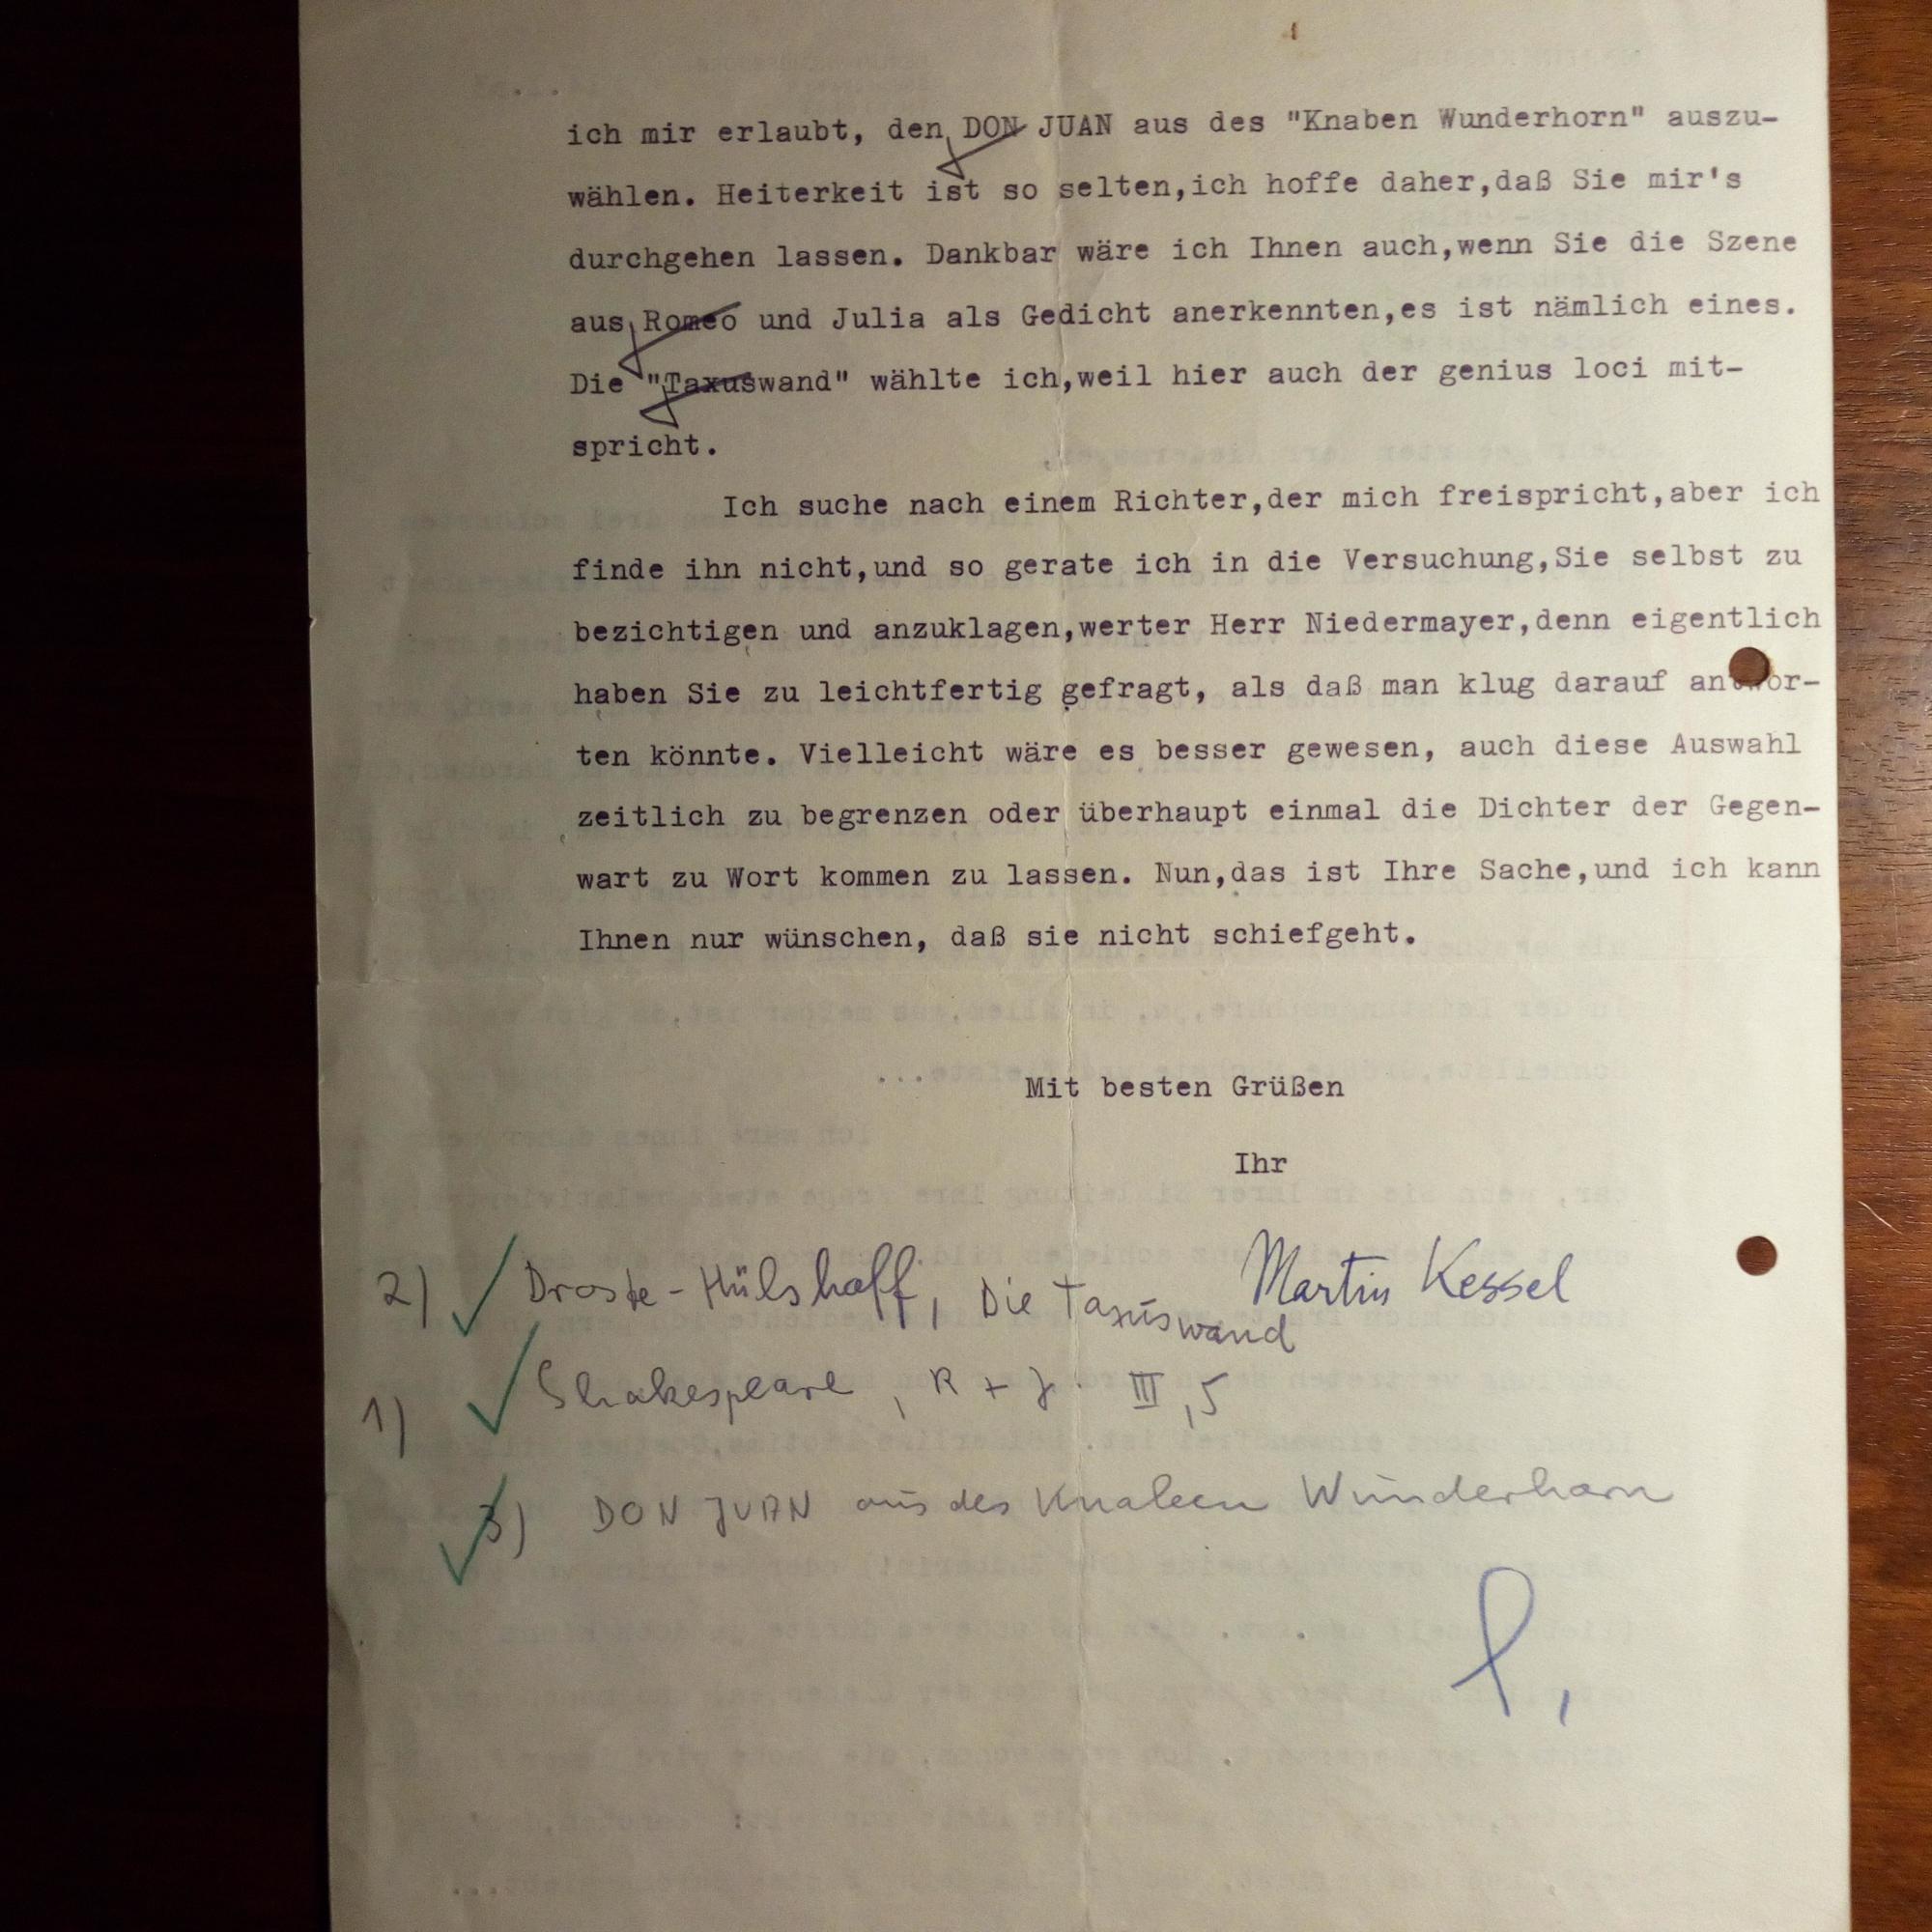 ich mir erlaubt, den DON JUAN aus des "Knaben Wunderhorn" auszu-
wählen. Heiterkeit ist so selten,ich hoffe daher,daß Sie mir's
durchgehen lassen. Dankbar wäre ich Ihnen auch,wenn Sie die Szene
aus Romeo und Julia als Gedicht anerkennten,es ist nämlich eines.
Die "Taxuswand" wählte ich,weil hier auch der genius loci mit-
spricht.
Ich suche nach einem Richter,der mich freispricht,aber ich
finde ihn nicht,und so gerate ich in die Versuchung,Sie selbst zu
bezichtigen und anzuklagen,werter Herr Niedermayer,denn eigentlich
haben Sie zu leichtfertig gefragt, als daß man klug darauf antwor-
ten könnte. Vielleicht wäre es besser gewesen, auch diese Auswahl
zeitlich zu begrenzen oder überhaupt einmal die Dichter der Gegen-
wart zu Wort kommen zu lassen. Nun,das ist Ihre Sache,und ich kann
Ihnen nur wünschen, daß sie nicht schiefgeht.
Mit besten Grüßen
Ihr
Martin Kessel
2) Droste-Hülshoff, Die Taxuswand
1) Shakespeare, R + J. III,5
3) DON JUAN aus des Knaben Wunderhorn